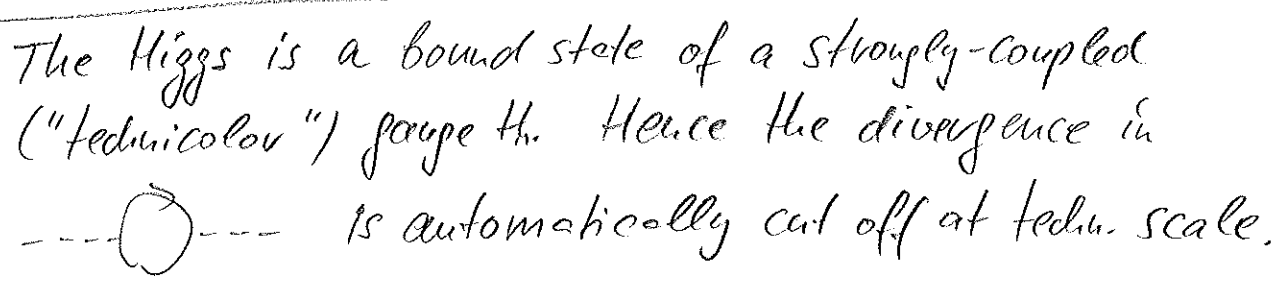 The Higgs is a bound state of a strongly-coupled
("technicolor") gauge th. Hence the divergence in
is automatically cut off at techn. scale.